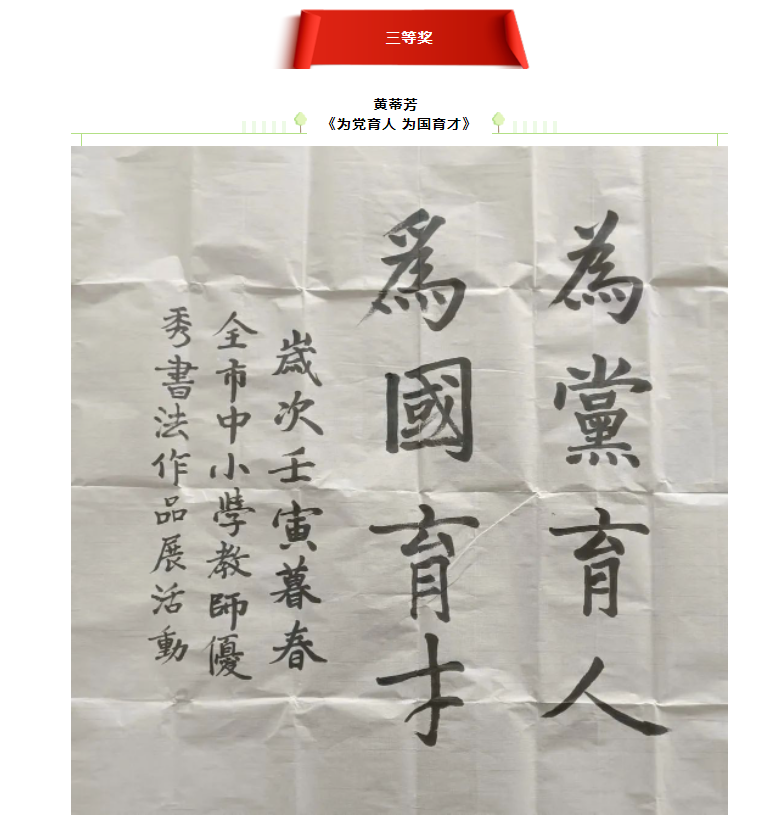 三等奖
黄蒂芳
《为党育人 为国育才》
為黨育人
爲國育才
歲次壬寅暮春
全市中小學教師優
秀書法作品展活動